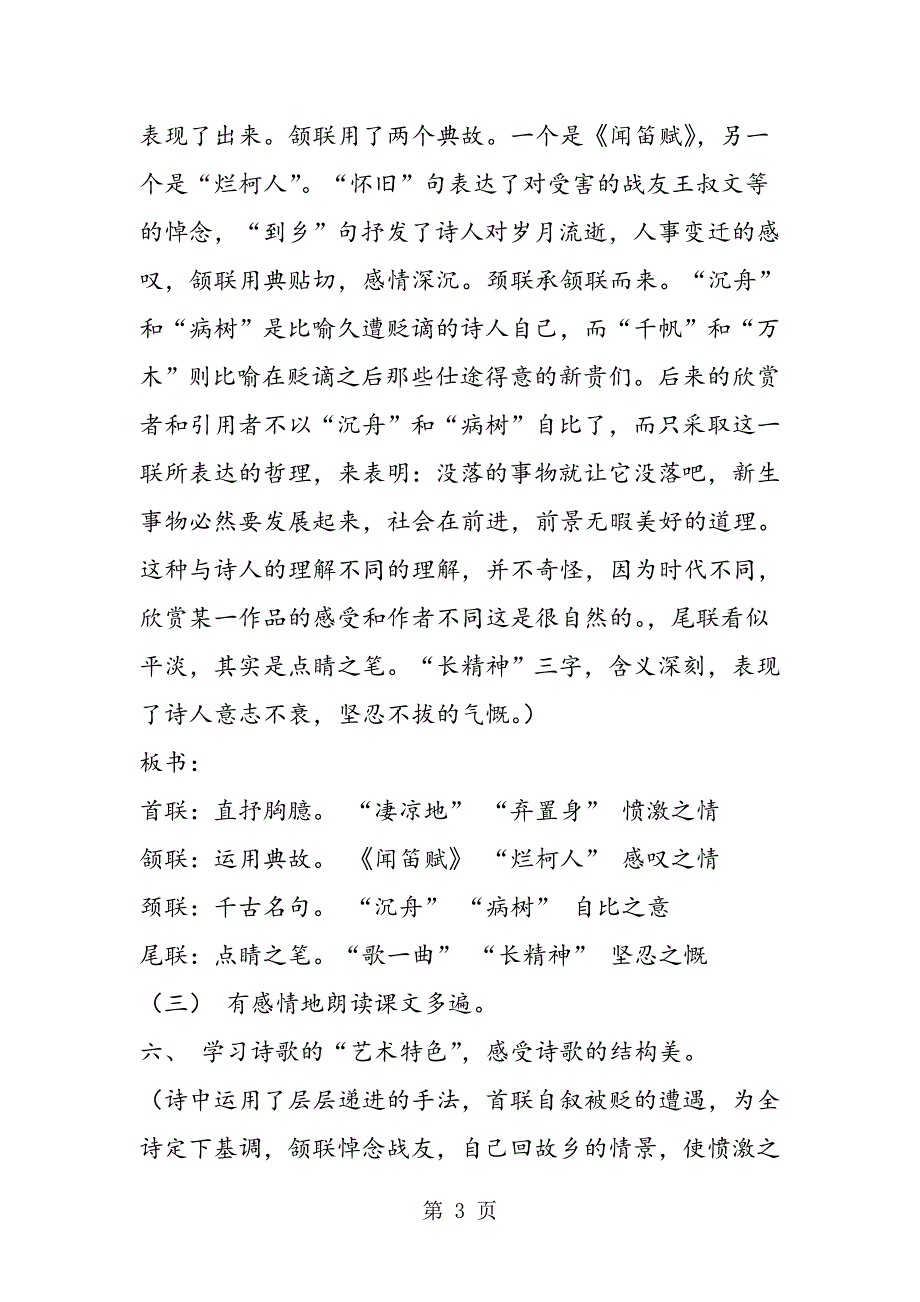 表现了出来。颔联用了两个典故。一个是《闻笛赋》，另一
个是“烂柯人”。“怀旧”句表达了对受害的战友王叔文等
的悼念，“到乡”句抒发了诗人对岁月流逝，人事变迁的感
叹，颔联用典贴切，感情深沉。颈联承颔联而来。“沉舟”
和“病树”是比喻久遭贬谪的诗人自己，而“千帆”和“万
木”则比喻在贬谪之后那些仕途得意的新贵们。后来的欣赏
者和引用者不以“沉舟”和“病树”自比了，而只采取这一
联所表达的哲理，来表明：没落的事物就让它没落吧，新生
事物必然要发展起来，社会在前进，前景无暇美好的道理。
这种与诗人的理解不同的理解，并不奇怪，因为时代不同，
欣赏某一作品的感受和作者不同这是很自然的。，尾联看似
平淡，其实是点晴之笔。“长精神”三字，含义深刻，表现
了诗人意志不衰，坚忍不拔的气慨。）
板书：
首联：直抒胸臆。 “凄凉地” “弃置身” 愤激之情
颔联：运用典故。 《闻笛赋》 “烂柯人” 感叹之情
颈联：千古名句。 “沉舟” “病树” 自比之意
尾联：点晴之笔。“歌一曲” “长精神” 坚忍之慨
（三） 有感情地朗读课文多遍。
六、 学习诗歌的“艺术特色”，感受诗歌的结构美。
（诗中运用了层层递进的手法，首联自叙被贬的遭遇，为全
诗定下基调，颔联悼念战友，自己回故乡的情景，使愤激之
第 3 页